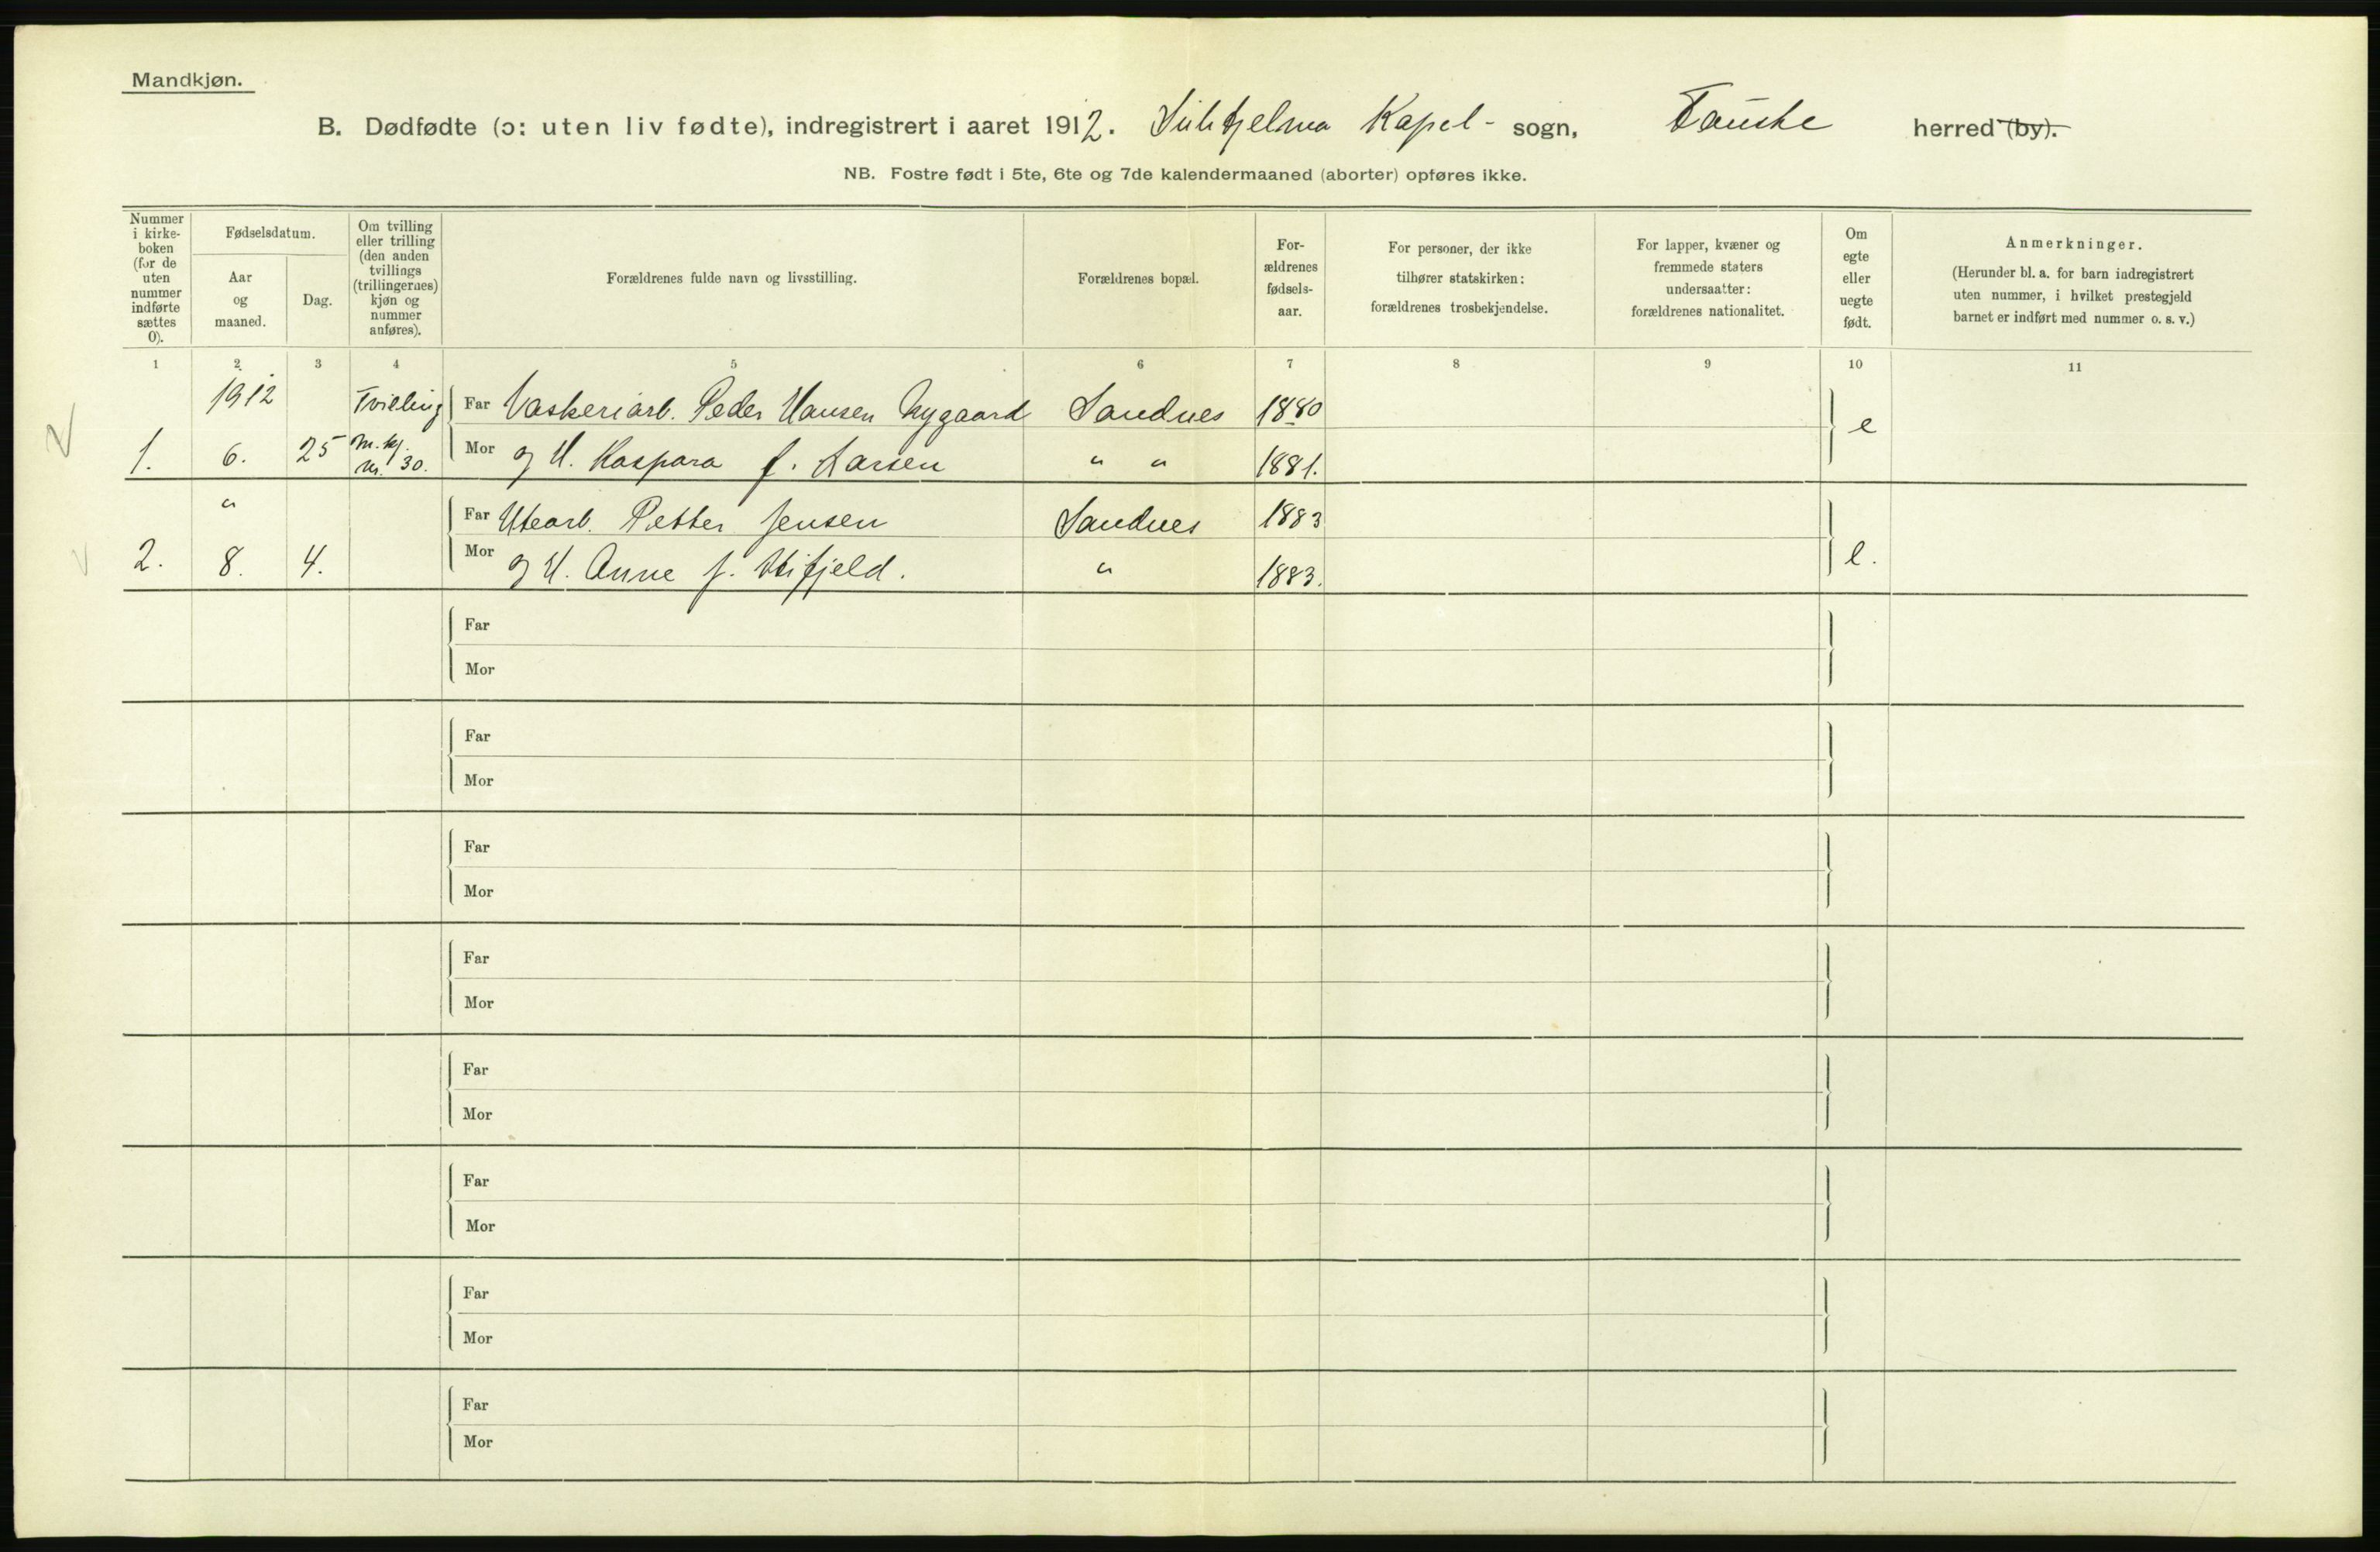 Mandkjøn.
B. Dødfødte (ɔ: uten liv fødte), indregistrert i aaret 1912. Sulitjelma Kapel- sogn, Fauske herred (by).
NB. Fostre født i 5te, 6te og 7de kalendermaaned (aborter) opføres ikke.
Nummer
i kirke-
boken
(for de
uten
nummer
indførte
sættes
0).
Fødselsdatum.
Aar
og
maaned.
Dag.
Om tvilling
eller trilling
(den anden
tvillings
(trillingernes)
kjøn og
nummer
anføres).
Forældrenes fulde navn og livsstilling.
Forældrenes bopæl.
For-
ældrenes
fødsels-
aar.
For personer, der ikke
tilhører statskirken:
forældrenes trosbekjendelse.
For lapper, kvæner og
fremmede staters
undersaatter:
forældrenes nationalitet.
Om
egte
eller
uegte
født.
Anmerkninger.
(Herunder bl. a. for barn indregistrert
uten nummer, i hvilket prestegjeld
barnet er indført med nummer o. s. v.)
1 2 3 4 5 6 7 8 9 10 11
1912 Tvilling Far Vaskeriarb. Peder Hansen Nygaard Sandnes 1880
e
1. 6. 25 m. kj. Mor og H. Kaspara f. Larsen " " 1881.
nr. 30.
" Far Utearb. Petter Jensen Sandnes 1883
2. 8. 4. Mor og H. Anne f. " 1883. e.
Far
Mor
Far
Mor
Far
Mor
Far
Mor
Far
Mor
Far
Mor
Far
Mor
Far
Mor